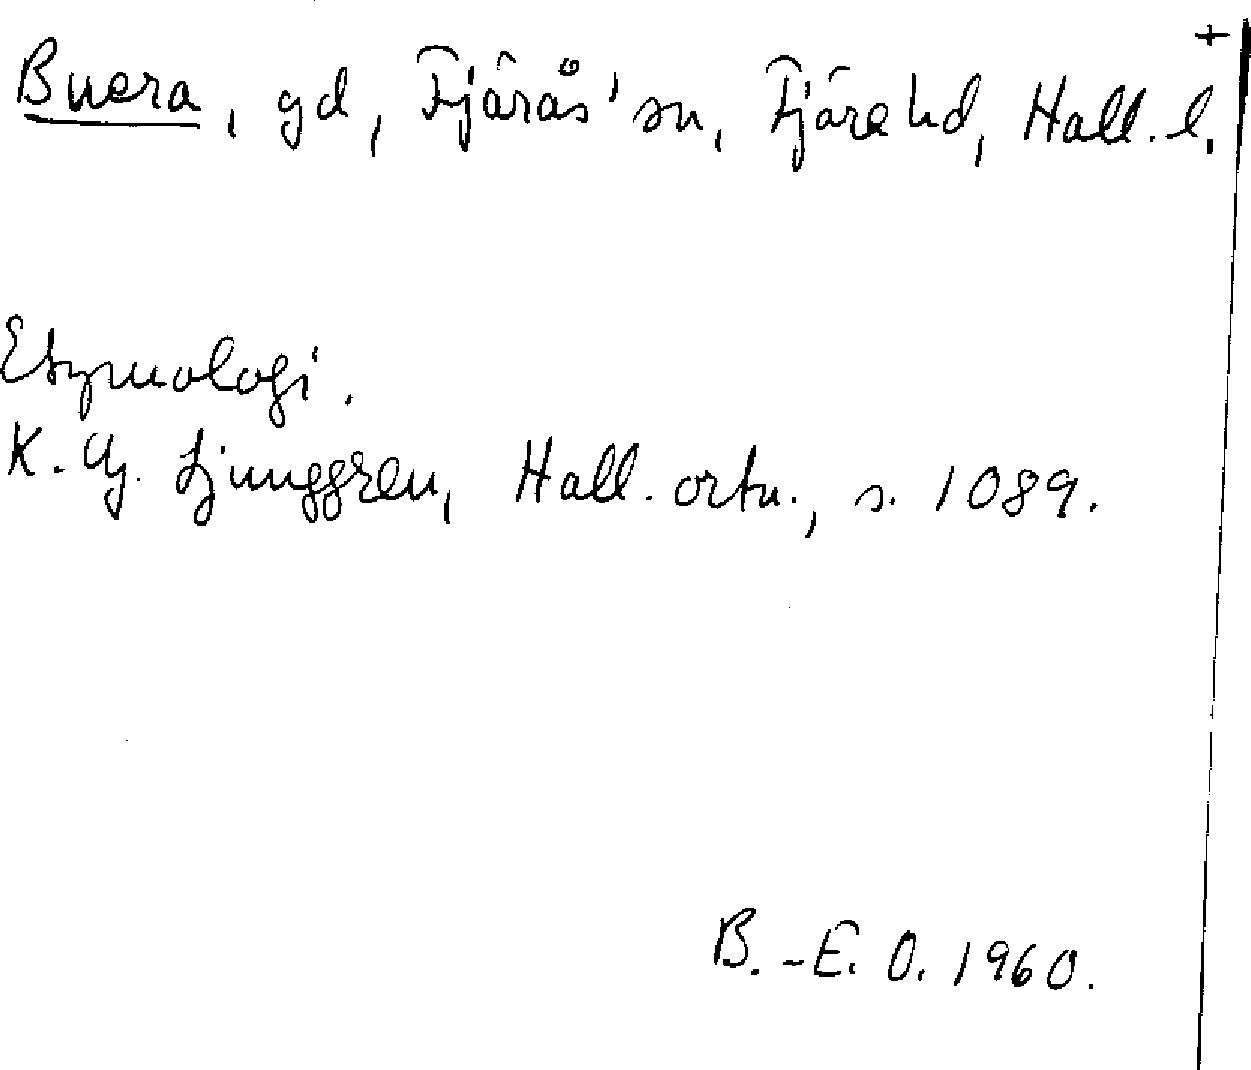 +
Buera, gd, Fjärås' sn, Fjäre hd, Hall. l.
Etymologi.
K. G. Ljunggren, Hall. ortn., s. 1089.
B.-E. O. 1960.